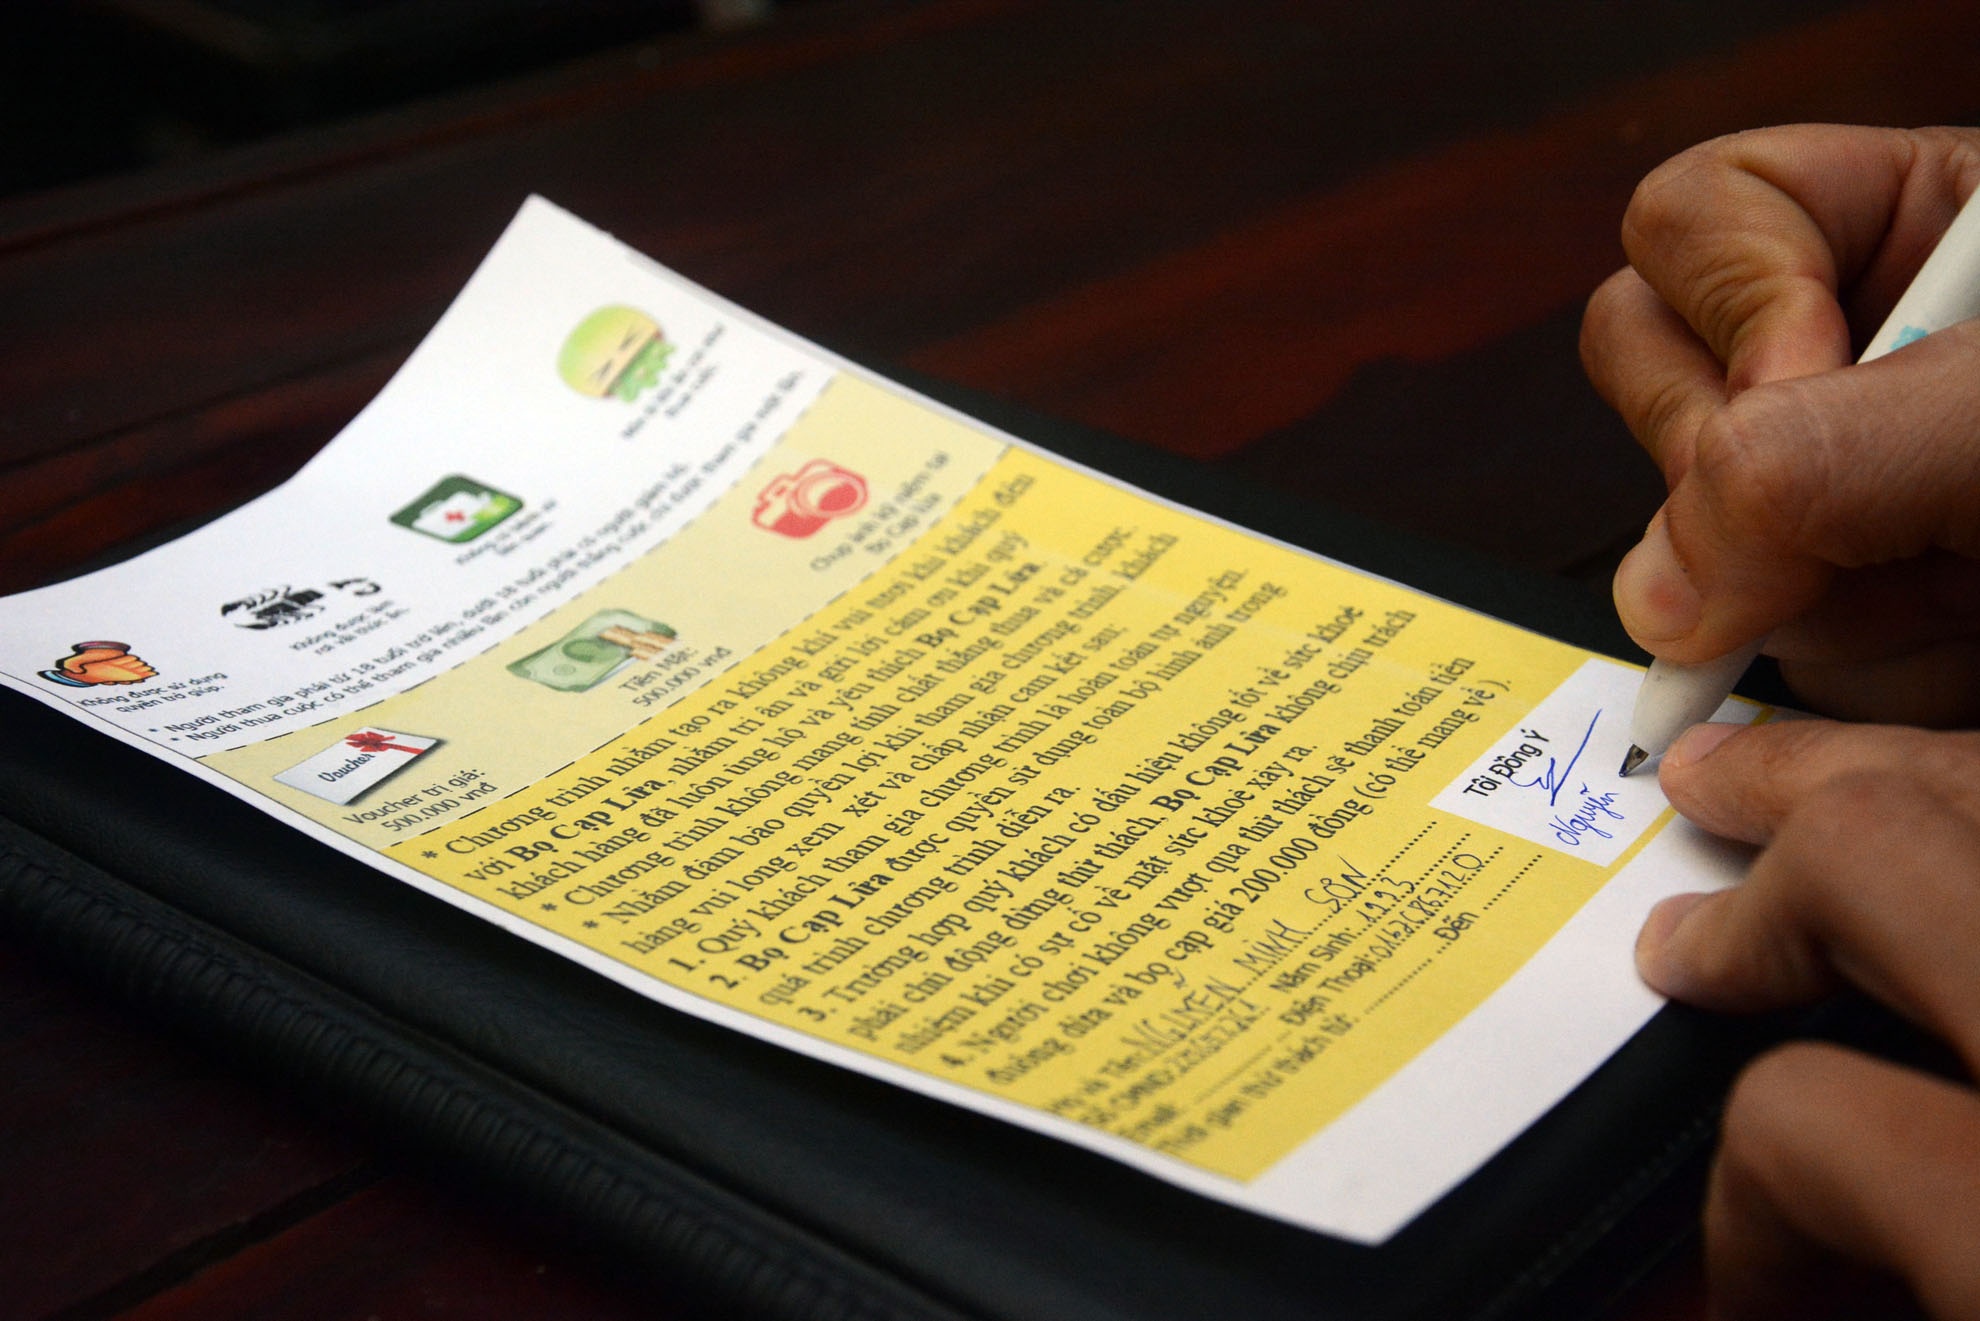 Không được sử dụng
quyền trợ giúp.
Không được làm
rơi vãi thức ăn.
* Người tham gia phải từ 18 tuổi trở lên, dưới 18 tuổi phải có người giám hộ.
* Người thua cuộc có thể tham gia nhiều lần còn người thắng cuộc chỉ được tham gia một lần.
Voucher
Voucher trị giá:
500.000 vnđ
Tiền Mặt:
500.000 vnđ
Chụp ảnh kỷ niệm tại
Bò Cạp Lửa
* Chương trình nhằm tạo ra không khí vui tươi khi khách đến
với Bọ Cạp Lửa, nhằm tri ân và gửi lời cảm ơn khi quý
khách hàng đã luôn ủng hộ và yêu thích Bọ Cạp Lửa.
* Chương trình không mang tính chất thắng thua và cá cược.
* Nhằm đảm bảo quyền lợi khi tham gia chương trình, khách
hàng vui lòng xem xét và chấp nhận cam kết sau:
1. Quý khách tham gia chương trình là hoàn toàn tự nguyện.
2. Bọ Cạp Lửa được quyền sử dụng toàn bộ hình ảnh trong
quá trình chương trình diễn ra.
3. Trường hợp quý khách có dấu hiệu không tốt về sức khoẻ
phải chủ động dừng thử thách, Bọ Cạp Lửa không chịu trách
nhiệm khi có sự cố về mặt sức khoẻ xảy ra.
4. Người chơi không vượt qua thử thách sẽ thanh toán tiền
đường dừa và bọ cạp giá 200.000 đồng (có thể mang về ).
Họ và Tên: NGUYỄN MINH SƠN
Số CMND: Năm Sinh: 1993
Email: Điện Thoại: 01626867120
Thời gian thử thách từ: Đến
Tôi Đồng Ý
Nguyễn